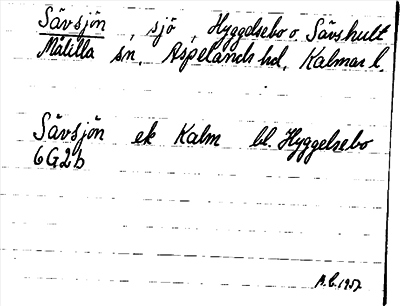 Sävsjön, sjö, Hyggelsebo o. Sävshult
Målilla sn, Aspelands hd, Kalmar l.
Sävsjön ek Kalm bl. Hyggelsebo
6G2b
A.C. 1957